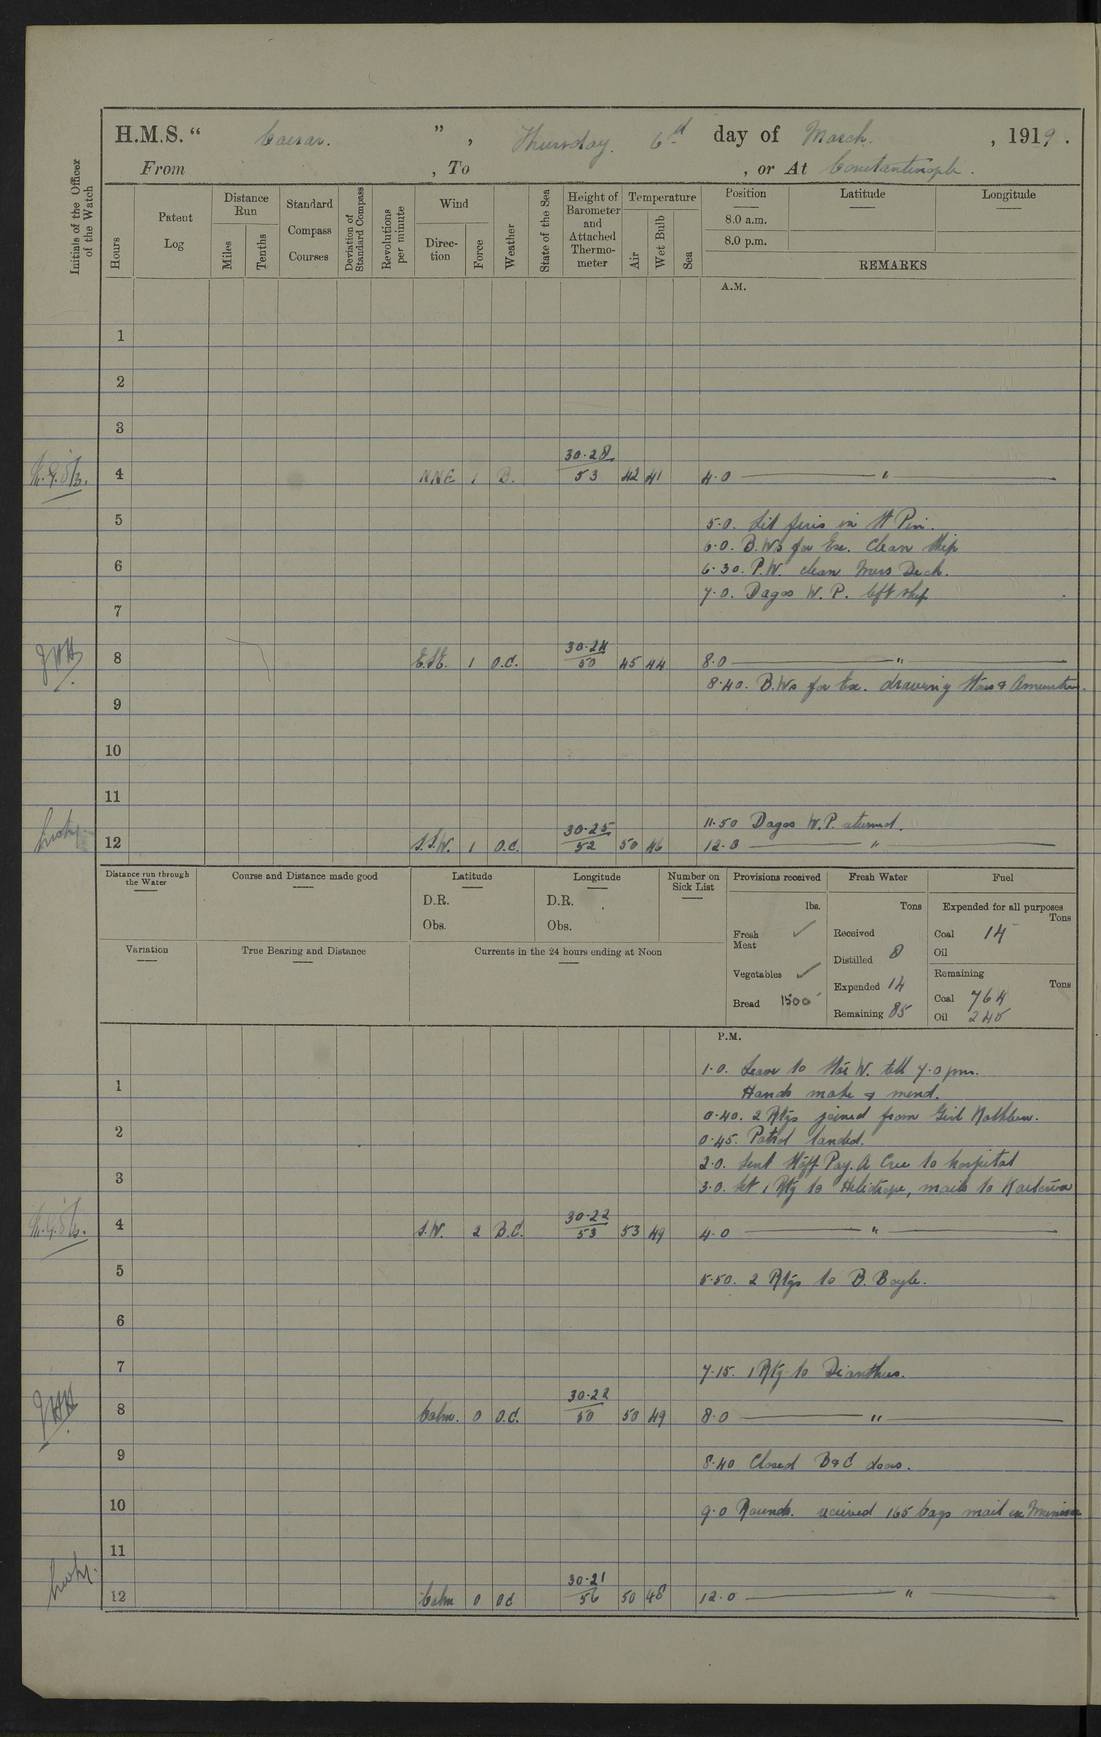 H.M.S. “ Caesar. ” , Thursday. 6th day of March. , 1919.
From , To , or At Constantinople.
Initials of the Officer of the Watch
Hours
Patent Log
Distance Run
Miles
Tenths
Standard Compass Courses
Deviation of Standard Compass
Revolutions per minute
Wind
Direction
Force
Weather
State of the Sea
Height of Barometer and Attached Thermometer
Temperature
Air
Wet Bulb
Sea
Position Latitude Longitude
8.0 a.m.
8.0 p.m.
REMARKS
A.M.
1
2
3
4 NNE 1 B. 30.28/53 42 41 4.0 "
5 5.0. Lit fires in St Pin.
6.0. B.Ws for Ex. Clean ship
6 6.30. P.W. clean Mess Deck.
7.0. Dagos W.P. left ship
7
8 1 O.C. 30.24/50 45 44 8.0 "
8.40. B.Ws for Ex. drawing Stores & Ammunition.
9
10
11
11.50 Dagos W.P. returned.
12 S.S.W. 1 O.C. 30.25/52 50 46 12.0 "
Distance run through the Water
Course and Distance made good
Latitude
D.R.
Obs.
Longitude
D.R.
Obs.
Number on Sick List
Provisions received
lbs.
Fresh Meat ✓
Vegetables ✓
Bread 1500
Fresh Water
Tons
Received
Distilled 8
Expended 14
Remaining 85
Fuel
Expended for all purposes
Tons
Coal 14
Oil
Remaining
Tons
Coal 764
Oil 245
Variation
True Bearing and Distance
Currents in the 24 hours ending at Noon
P.M.
1.0. Leave to W. till 7.0 pm.
1 Hands make & mend.
0.40. 2 Rtgs joined from
2 0.45. Patrol landed.
2.0. Sent Staff Pay. A Cree to hospital
3 3.0. 1 Rtg to Heliotrope, mails to
4 S.W. 2 B.C. 30.22/53 53 49 4.0 "
5 5.50. 2 Rtgs to B. Boyle.
6
7 7.15. 1 Rtg to Dianthus.
8 Calm. 0 O.C. 30.22/50 50 49 8.0 "
9 8.40 Closed B & C doors.
10 9.0 Rounds. received 165 bags mail ex
11
12 Calm 0 OC 30.21/56 50 48 12.0 "